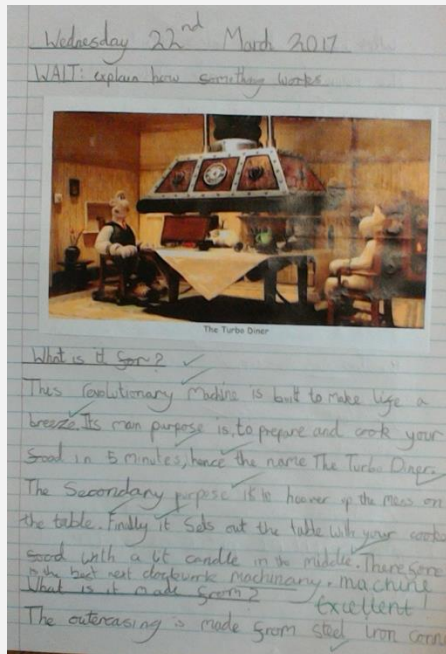 Wednesday 22nd March 2017
WALT: explain how something works
The Turbo Diner
What is it for?
This revolutionary machine is built to make life a
breeze. Its main purpose is, to prepare and cook your
food in 5 minutes, hence the name The Turbo Diner.
The Secondary purpose is to hoover up the mess on
the table. Finally it sets out the table with your cooked
food with a lit candle in the middle. Therefore
is the best next clockwork machinary. machine
What is it made from?
Excellent
The outercasing is made from steel, iron